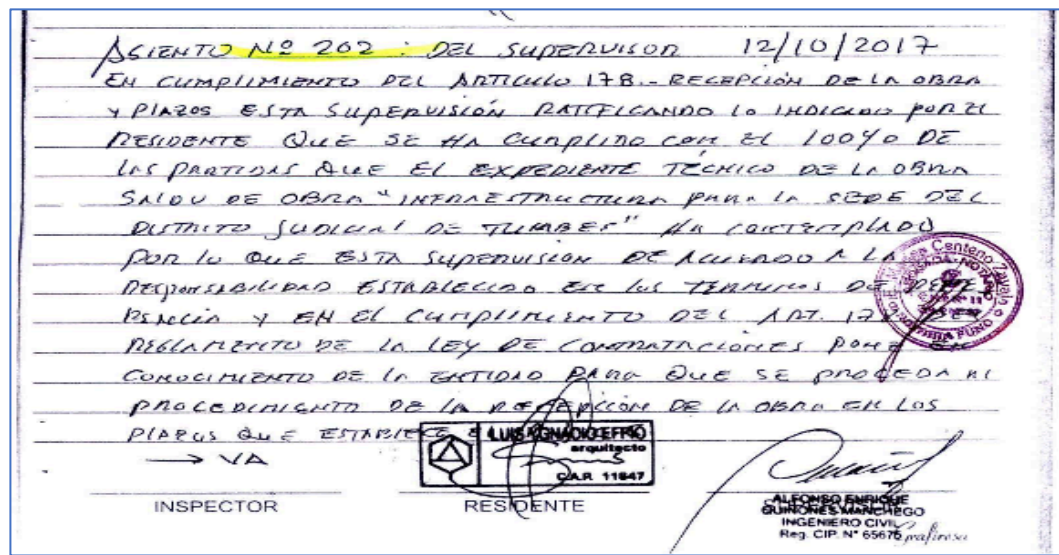 ASIENTO Nº 202 : DEL SUPERVISOR 12/10/2017
EN CUMPLIMIENTO DEL ARTICULO 178.- RECEPCIÓN DE LA OBRA
Y PLAZOS ESTA SUPERVISIÓN RATIFICANDO LO INDICADO POR EL
RESIDENTE QUE SE HA CUMPLIDO CON EL 100% DE
LAS PARTIDAS QUE EL EXPEDIENTE TÉCNICO DE LA OBRA
SALDO DE OBRA "INFRAESTRUCTURA PARA LA SEDE DEL
DISTRITO JUDICIAL DE TUMBES" HA CONTEMPLADO
POR LO QUE ESTA SUPERVISION DE ACUERDO A LA
RESPONSABILIDAD ESTABLECIDO EN LOS TERMINOS DE REFE
RENCIA Y EN EL CUMPLIMIENTO DEL ART. 178 DEL
REGLAMENTO DE LA LEY DE CONTRATACIONES PONE EN
CONOCIMIENTO DE LA ENTIDAD PARA QUE SE PROCEDA AL
PROCEDIMIENTO DE LA RECEPCIÓN DE LA OBRA EN LOS
PLAZOS QUE ESTABLECE
→ VA
LUIS IGNACIO EFFIO
arquitecto
C.A.R. 11647
INSPECTOR
RESIDENTE
ALFONSO ENRIQUE
QUIÑONES MANCHEGO
INGENIERO CIVIL
Reg. CIP. N° 65675
Centeno Zavala
ABOGADA-NOTARIO
PUNO